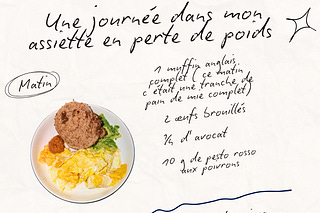 Une journée dans mon
assiette en perte de poids
Matin
1 muffin anglais
complet (ce matin
c'était une tranche de
pain de mie complet)
2 œufs brouillés
1/4 d'avocat
10 g de pesto rosso
aux poivrons